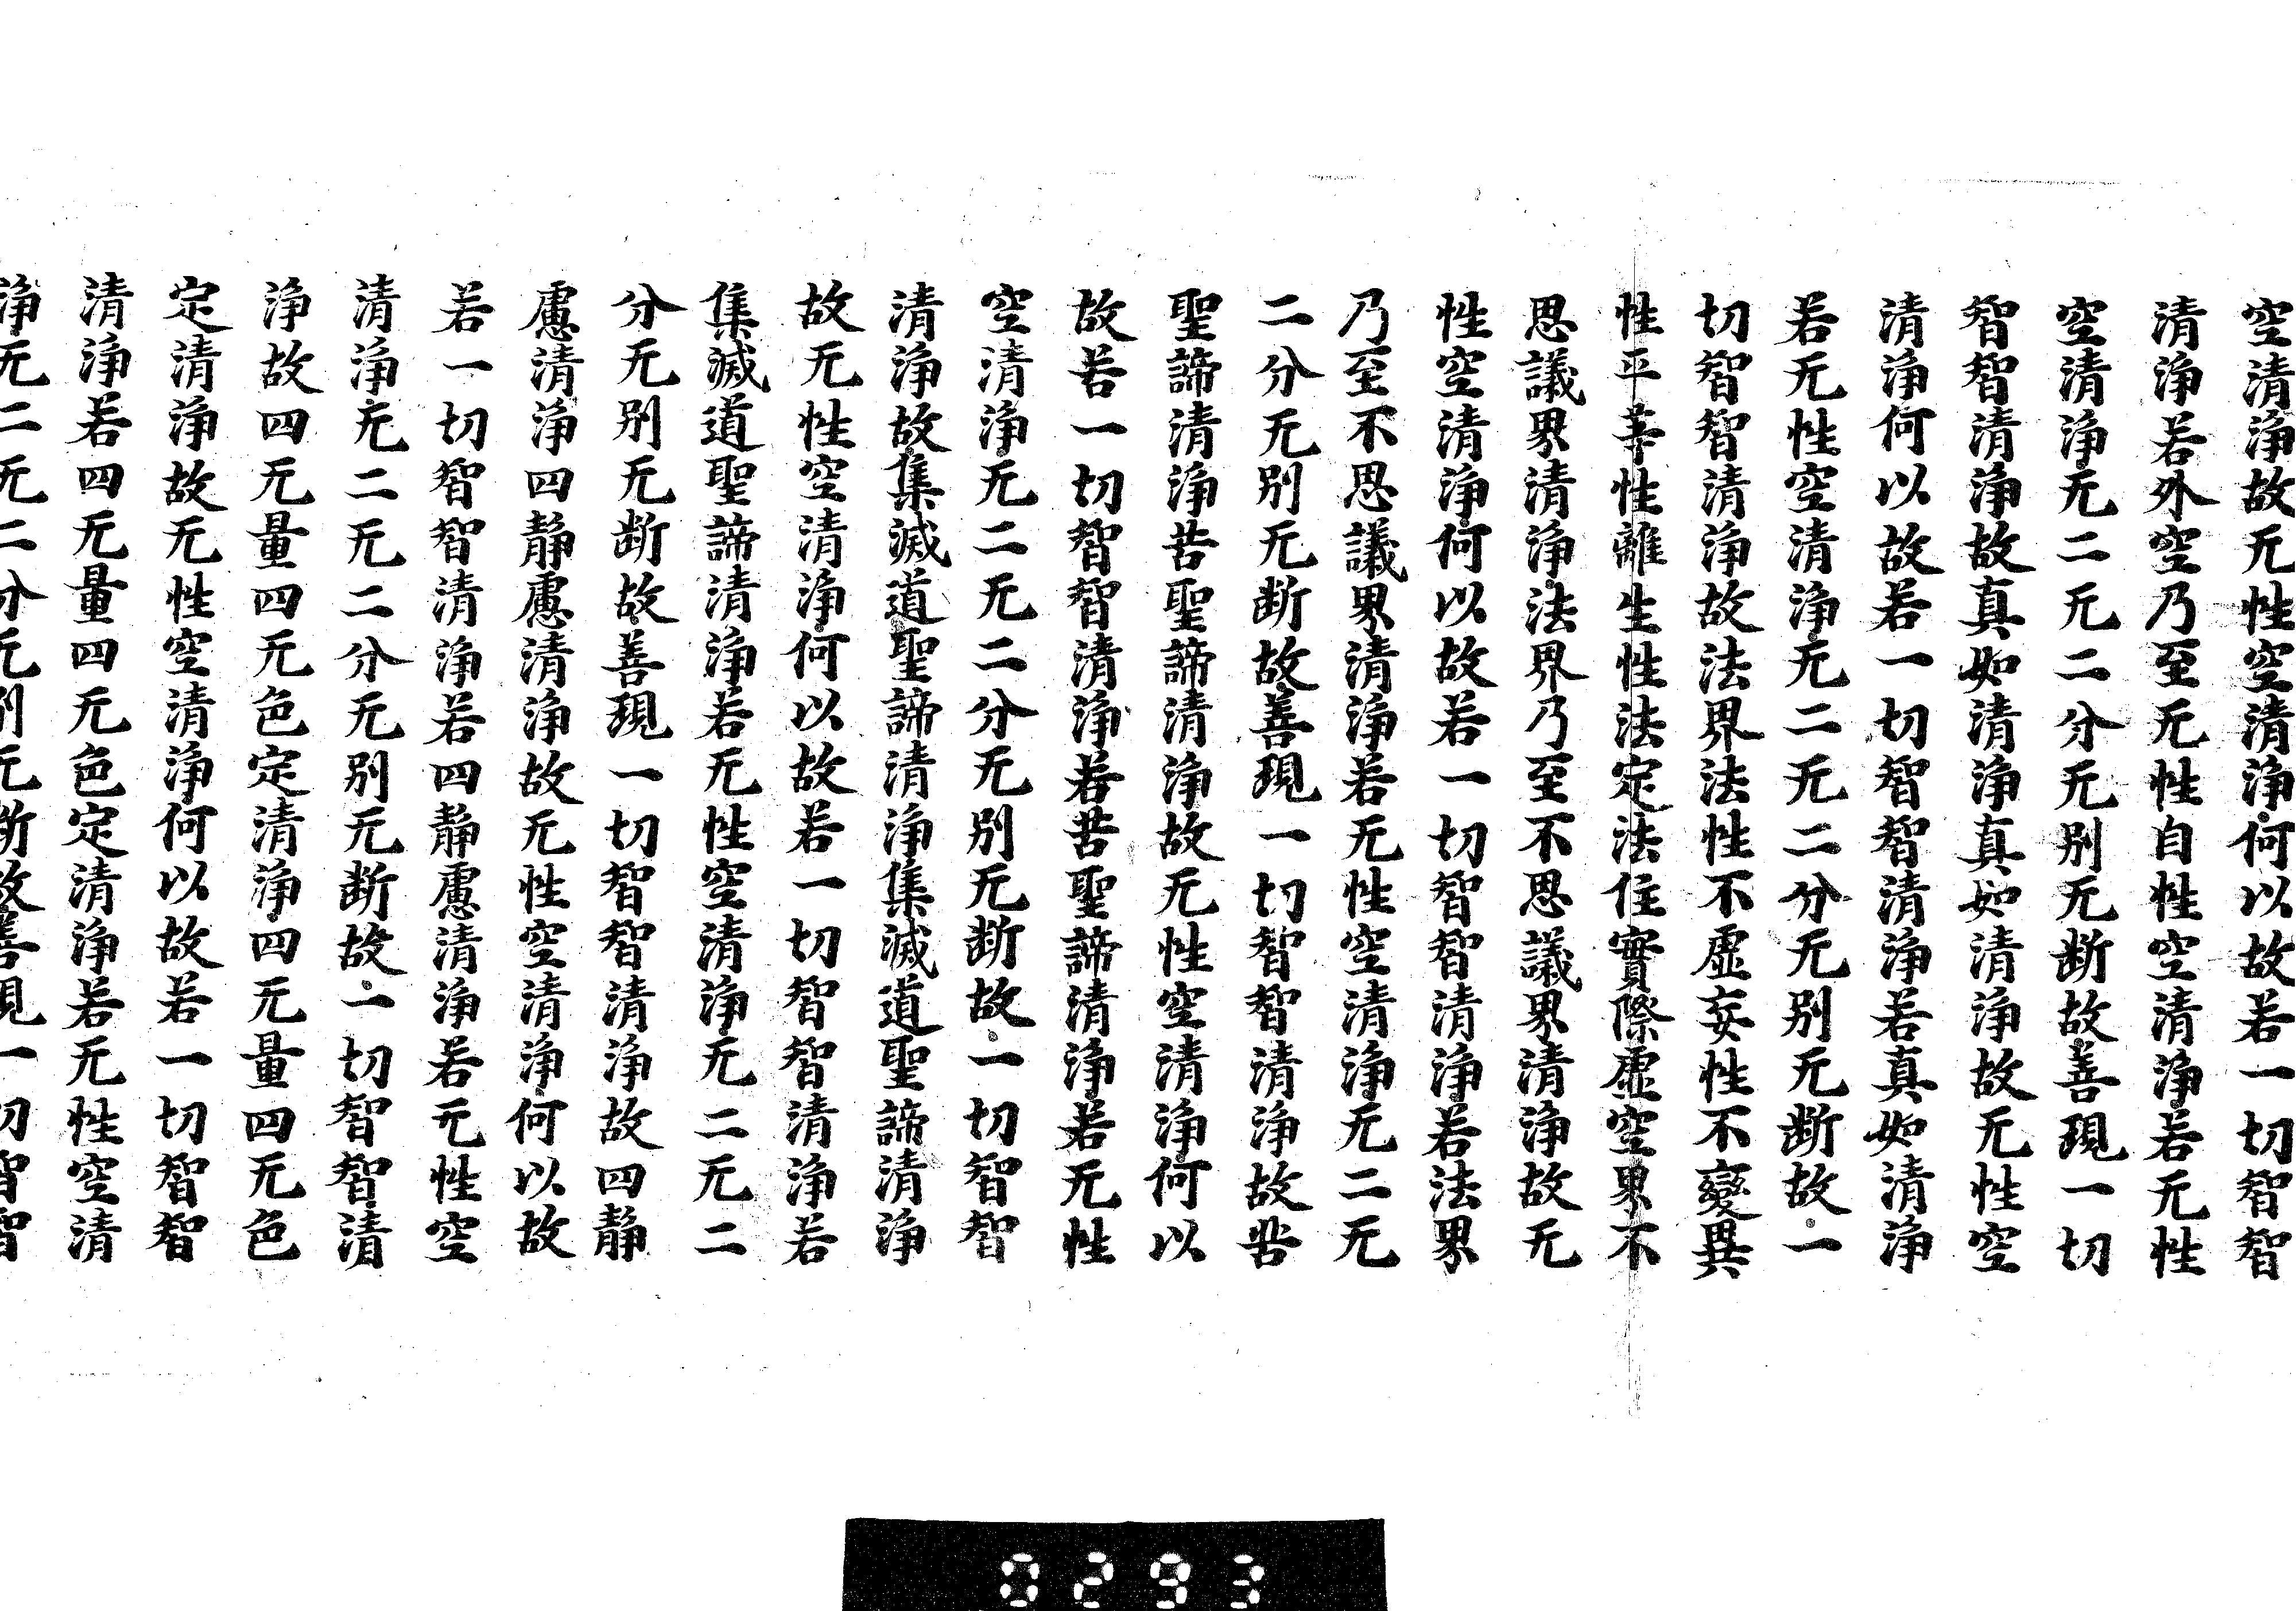 空清浄故无性空清浄何以故若一切智智
清浄若外空乃至无性自性空清浄若无性
空清浄无二无二分无别无断故善現一切
智智清浄故真如清浄真如清浄故无性空
清浄何以故若一切智智清浄若真如清浄
若无性空清浄无二无二分无别无断故一
切智智清浄故法界法性不虚妄性不變異
性平等性離生性法定法住實際虚空界不
思議界清浄法界乃至不思議界清浄故无
性空清浄何以故若一切智智清浄若法界
乃至不思議界清浄若无性空清浄无二无
二分无别无断故善現一切智智清浄故苦
聖諦清浄苦聖諦清浄故无性空清浄何以
故若一切智智清浄若苦聖諦清浄若无性
空清浄无二无二分无别无断故一切智智
清浄故集滅道聖諦清浄集滅道聖諦清浄
故无性空清浄何以故若一切智智清浄若
集滅道聖諦清浄若无性空清浄无二无二
分无别无断故善現一切智智清浄故四静
慮清浄四静慮清浄故无性空清浄何以故
若一切智智清浄若四静慮清浄若无性空
清浄无二无二分无别无断故一切智智清
浄故四无量四无色定清浄四无量四无色
定清浄故无性空清浄何以故若一切智智
清浄若四无量四无色定清浄若无性空清
浄无二无二分无别无断故善現一切智智
0293